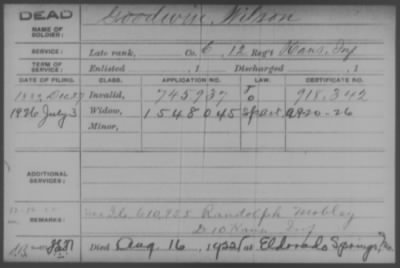 DEAD
NAME OF SOLDIER:
Goodwin, Wilson
SERVICE:
Late rank, Co. C, 12 Reg't Kans. Inf
TERM OF SERVICE:
Enlisted , 1 Discharged , 1
DATE OF FILING. CLASS. APPLICATION NO. LAW. CERTIFICATE NO.
Dec 27 Invalid, 745937 918,342
1926 July 3 Widow, 1548045 1920-26
Minor,
ADDITIONAL SERVICES:
REMARKS:
610,955 Randolph Mobley
D 10 Kans Inf
Died Aug. 16, 1922, at Eldorado Springs, Mo.